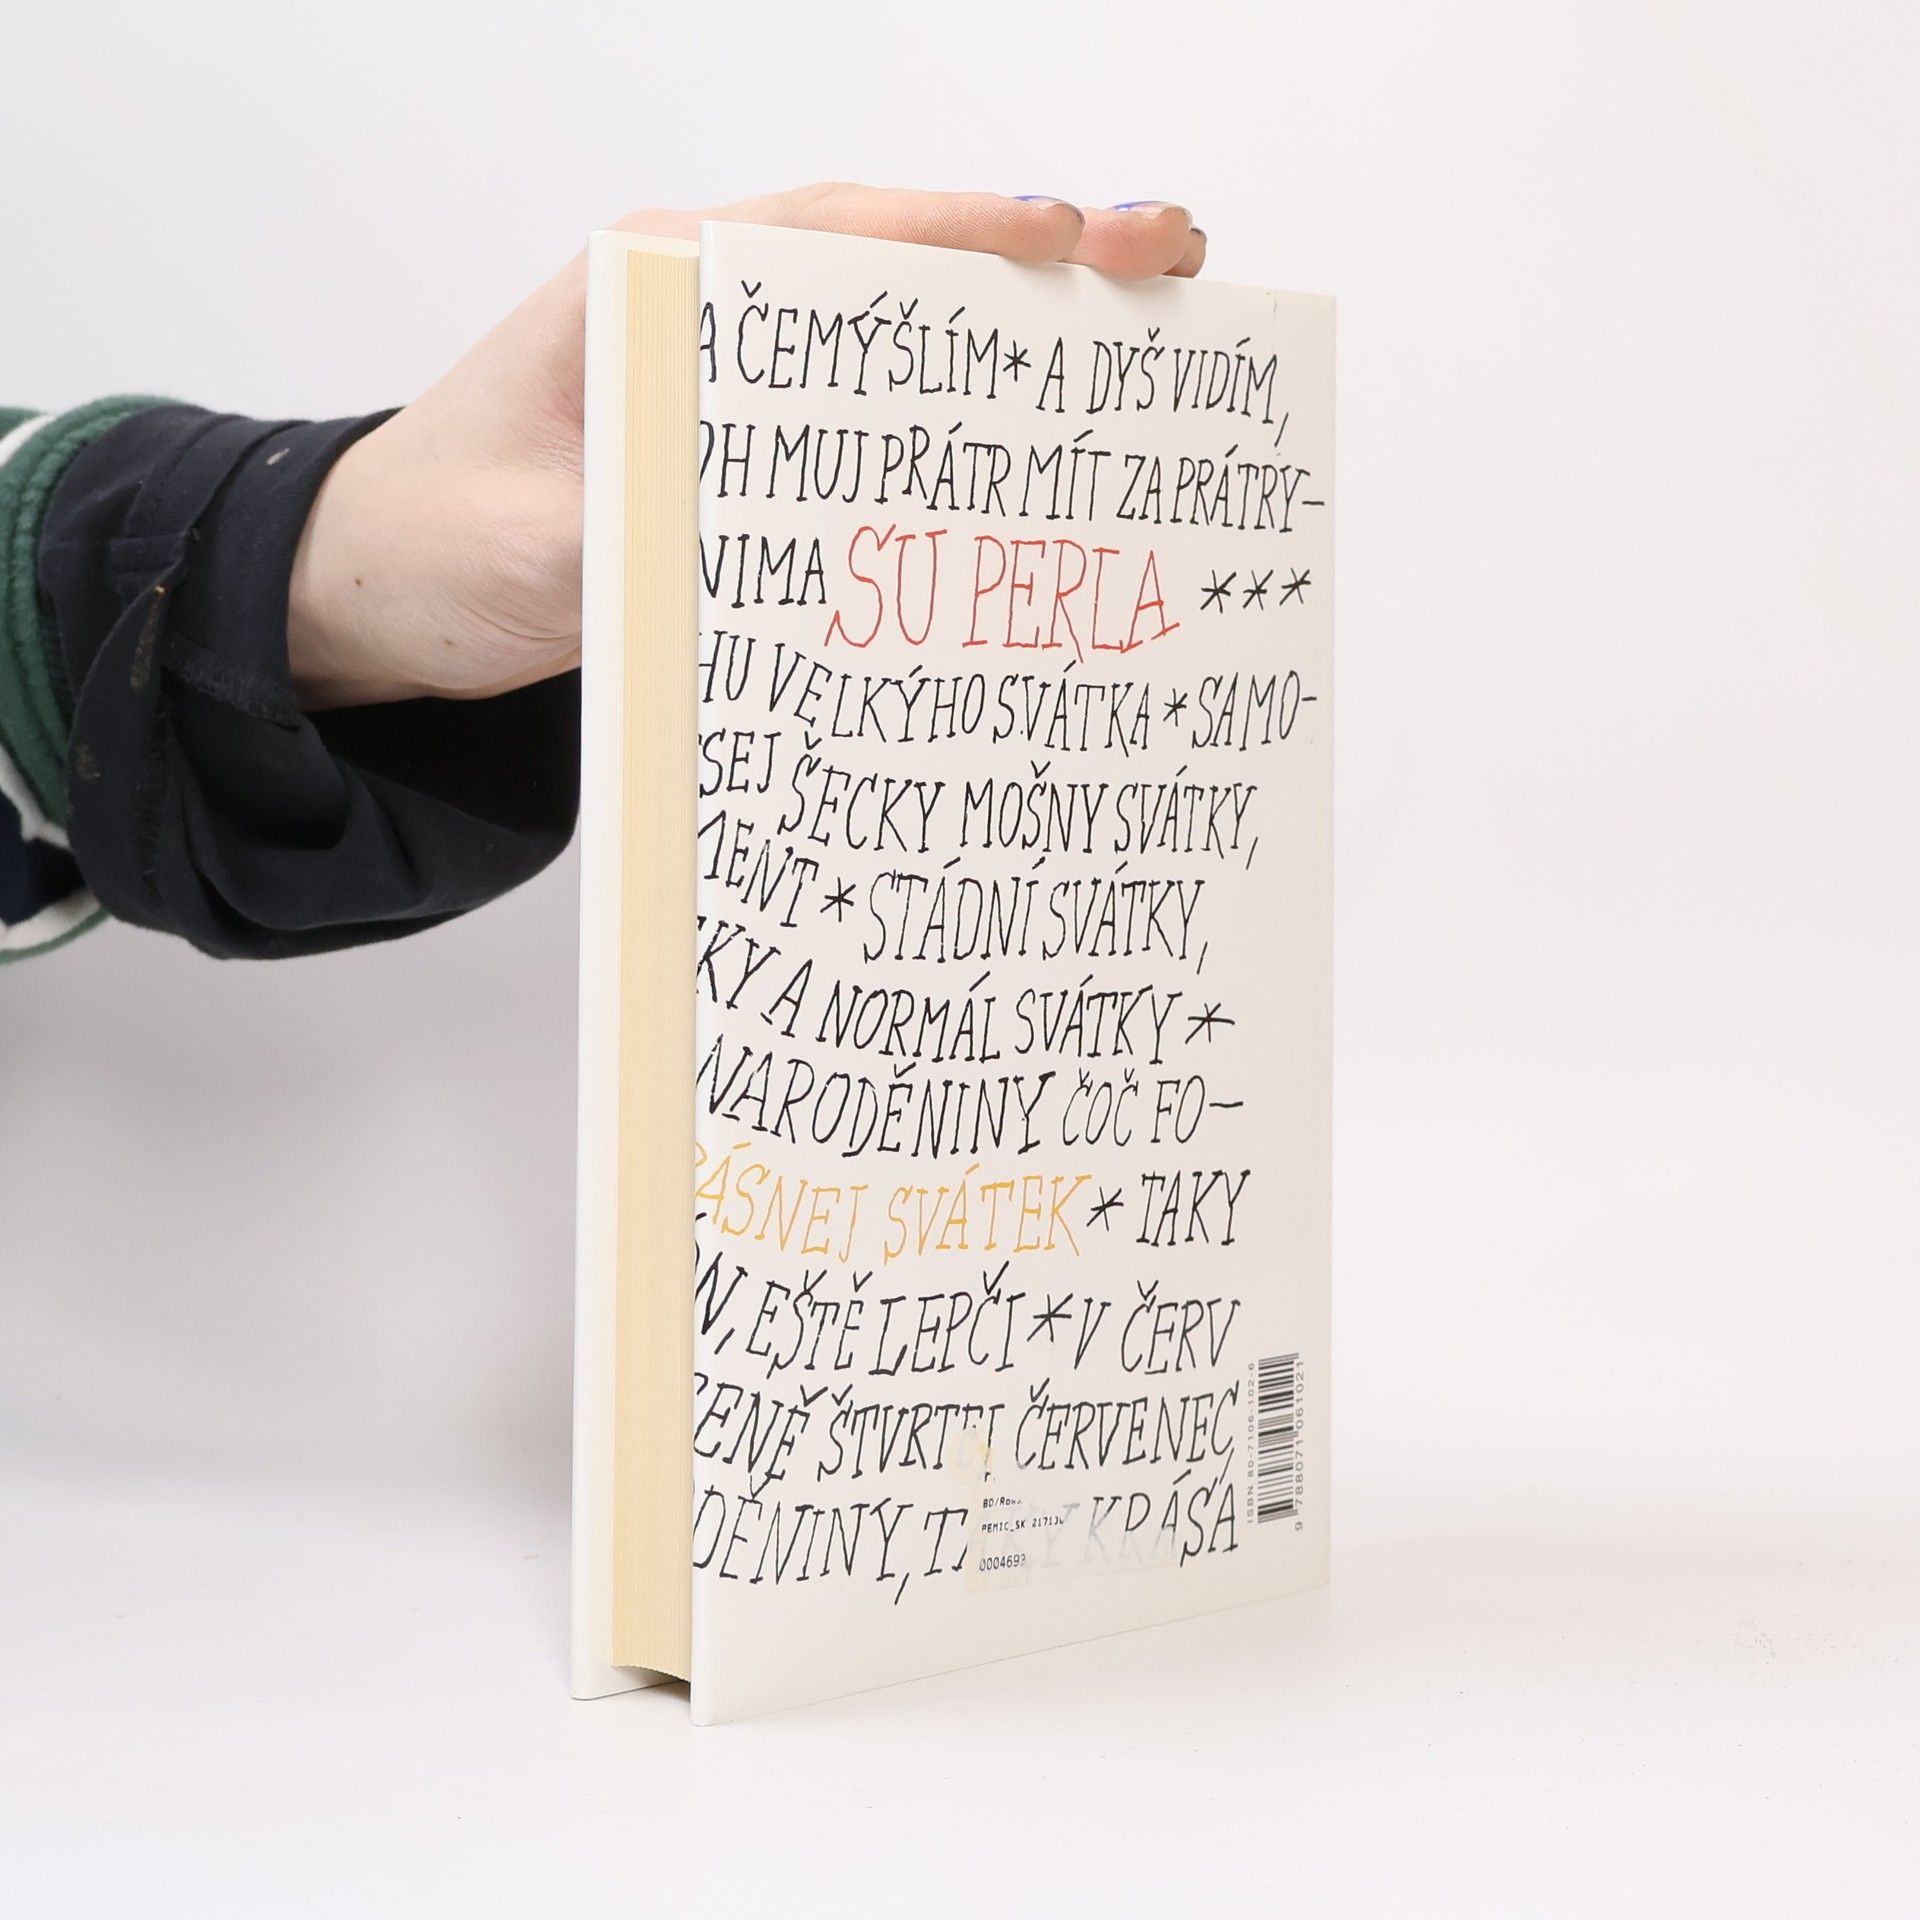 A ČEMÝŠLÍM * A DYŠ VIDÍM,
OH MUJ PRÁTR MÍT ZA PRÁTRY-
NIMA SU PERLA ***
HU VELKÝHO SVÁTKA * SAMO-
SEJ ŠECKY MOŠNY SVÁTKY,
MENT * STÁDNÍ SVÁTKY,
KY A NORMÁL SVÁTKY *
NARODĚNINY ČOČ FO-
ÁSNEJ SVÁTEK * TAKY
N, EŠTĚ LEPČI * V ČERV
ENĚ ŠTVRTEJ ČERVENEC,
DĚNINY, TAKY KRÁSA
ISBN 80-7106-102-6
9 788071 061021
BD/Rom.
PEMIC_SK
0004693